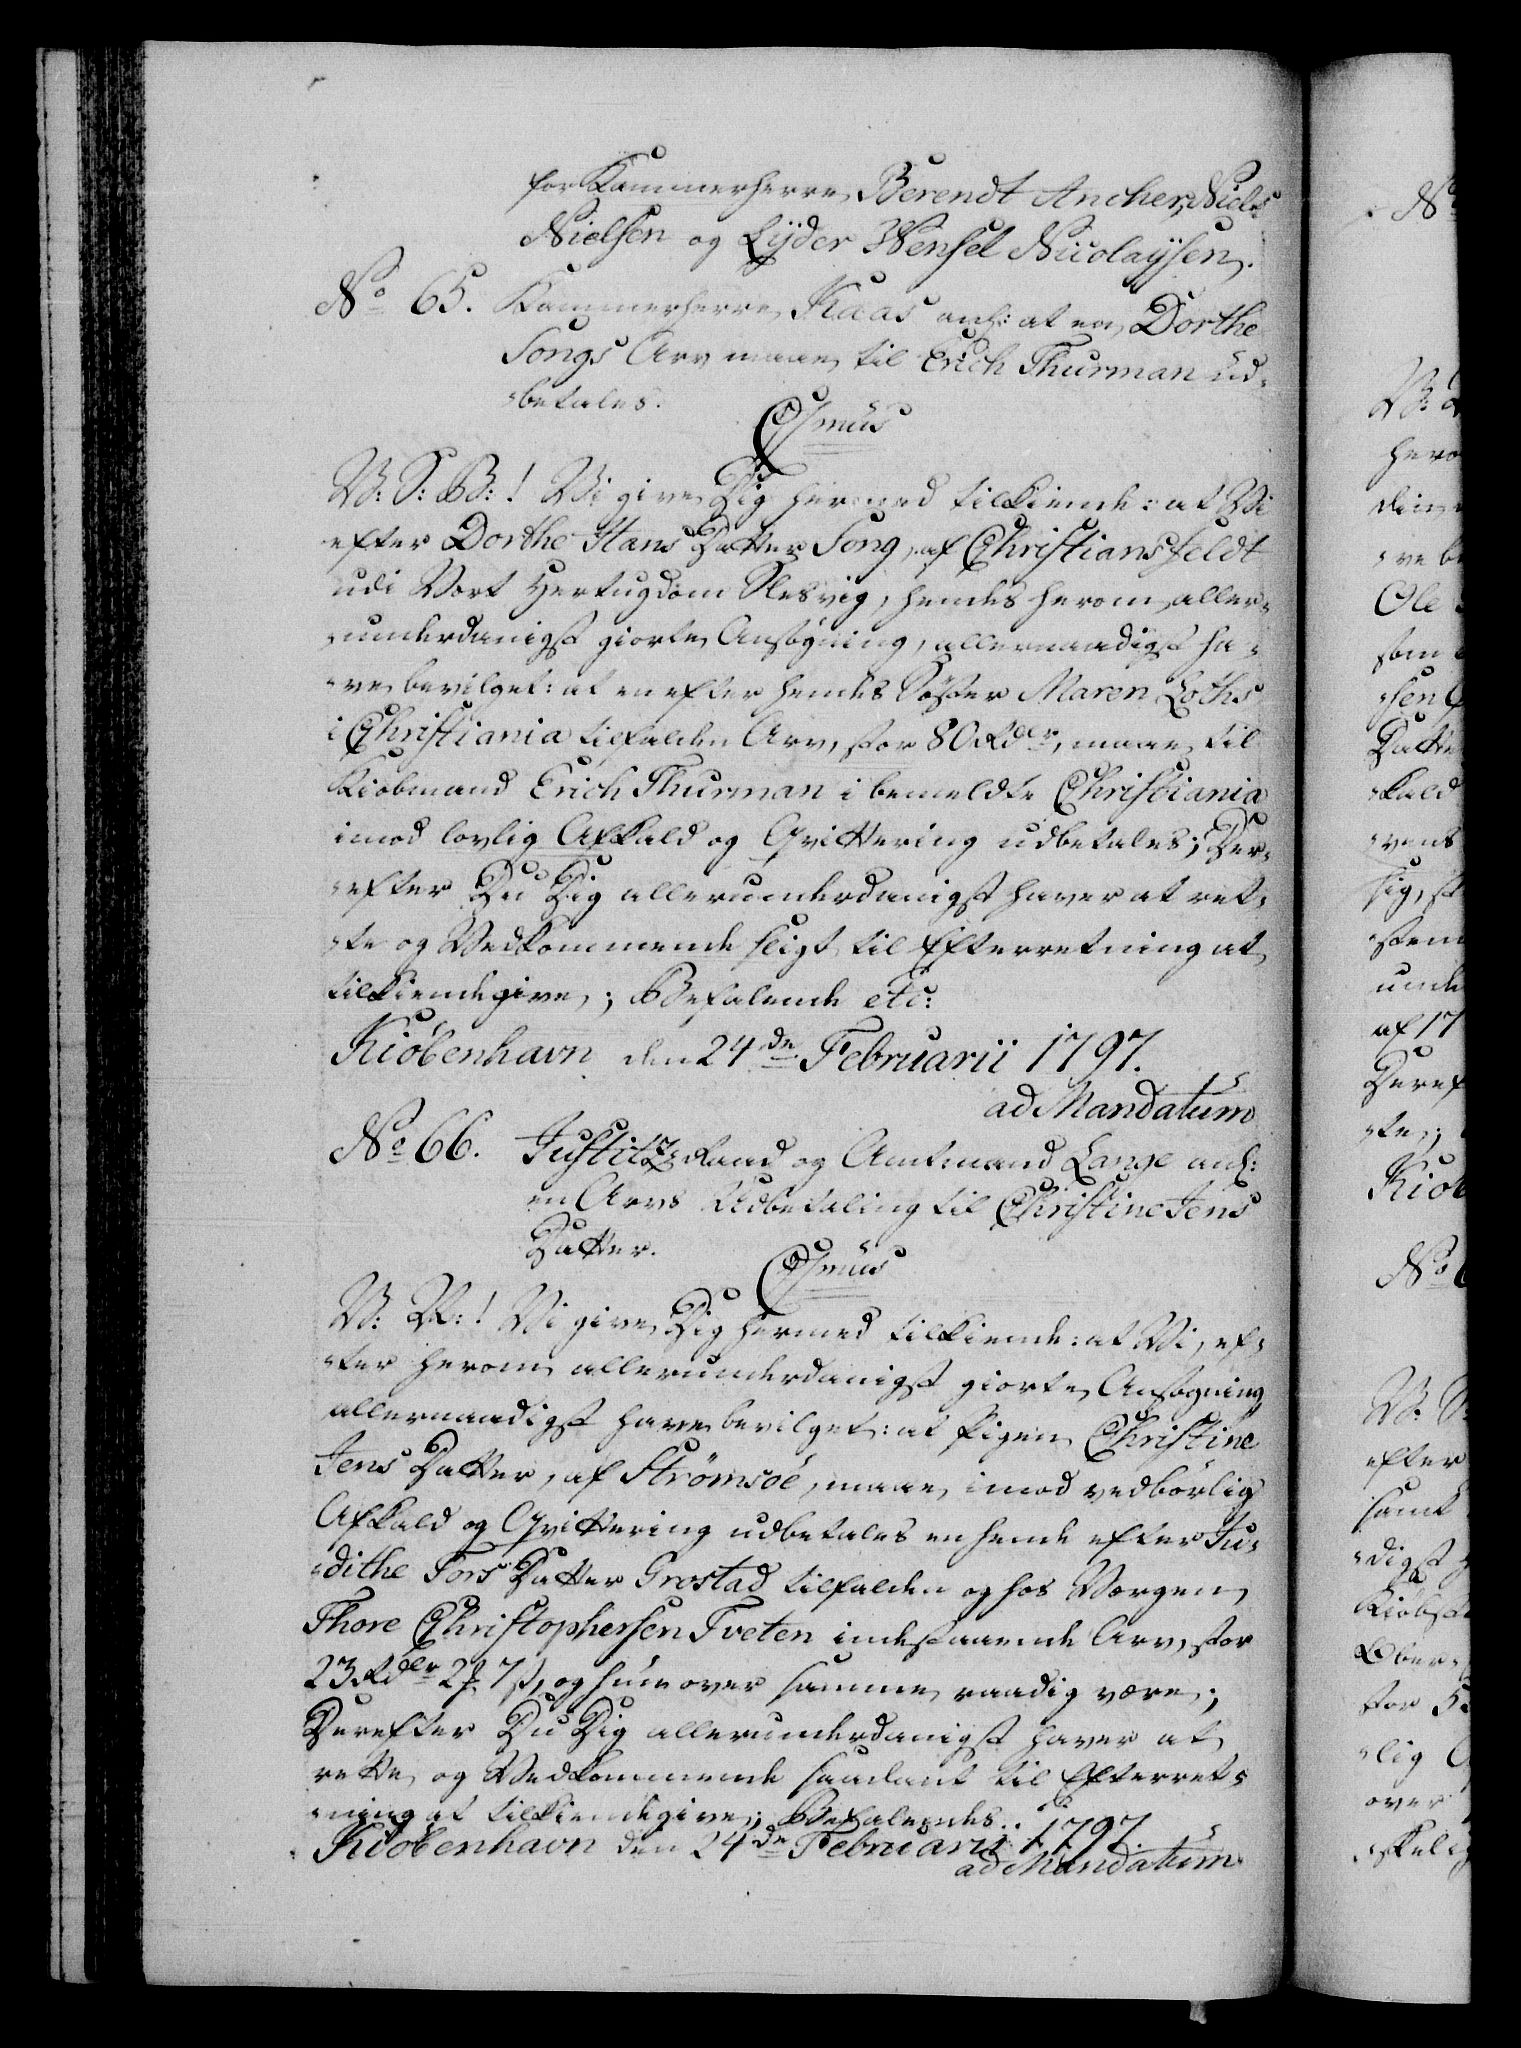 for Kammerherre Berendt Ancher, Niels
Nielsen og Lyder Wensel Nicolaysen.
No 65. Kammerherre Kaas anl: at en Dorthe
Songs Arv maae til Erich Thurman ud-
-betales.
C 7mus
V: S: B:! Vi give Dig hermed tilkiende: at Vi
efter Dorthe Hans Datter Song, af Christiansfeldt
udi Vort Hertugdom Slesvig, hendes herom aller-
-underdanigst giorte Ansøgning, allernaadigst ha-
-ve bevilget: at en efter hendes Søster Maren Loths
i Christiania tilfalden Arv, stor 80 Rdlr, maae til
Kiøbmand Erich Thurman i bemeldte Christiania
imod lovlig Afkald og Qvittering udbetales; Der-
-efter Du Dig allerunderdanigst haver at ret-
-te og Vedkommende sligt til Efterretning at
tilkiendegive; Befalende etc:
Kiøbenhavn den 24de Februarii 1797.
ad Mandatum
No 66. Justitz Raad og Amtmand Lange anl:
en Arvs Udbetaling til Christine Jens
Datter.
C 7mus
V: V:! Vi give Dig hermed tilkiende: at Vi, ef-
-ter herom allerunderdanigst giorte Ansøgning
allernaadigst have bevilget: at Pigen Christine
Jens Datter, af Strømsöe, maae, imod vedbørlig
Afkald og Qvittering udbetales en hende efter Ju-
-dithe Tors Datter Grostad tilfalden og hos Vergen
Thore Christophersen Tveten indestaaende Arv, stor
23 Rdlr 2 7 s, og hun over samme raadig være;
Derefter Du Dig allerunderdanigst haver at
rette og Vedkommende saadant til Efterret-
-ning at tilkiendegive; Befalendes.
Kiøbenhavn den 24de Februarii 1797.
ad Mandatum